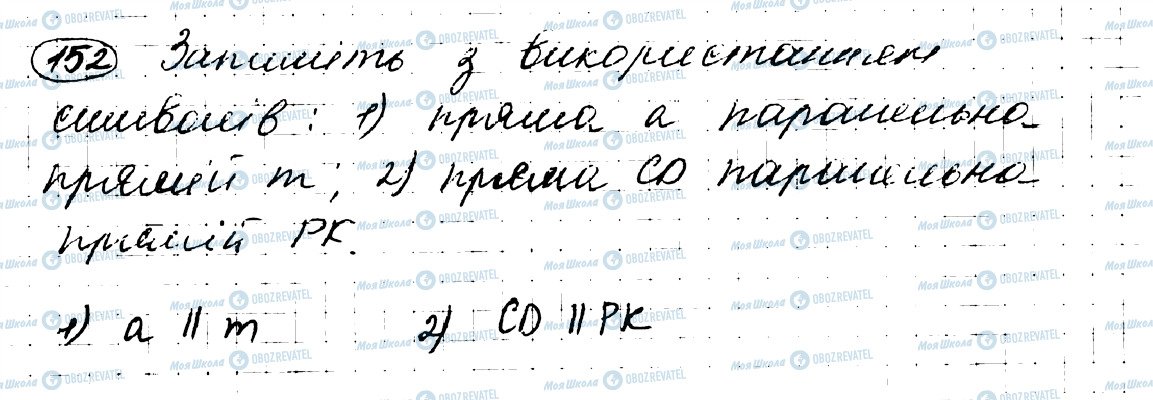 152 Запишіть з використанням
символів: 1) пряма а паралельна
прямій m; 2) пряма CD паралельна
прямій РК.
1) a || m 2) CD || PK